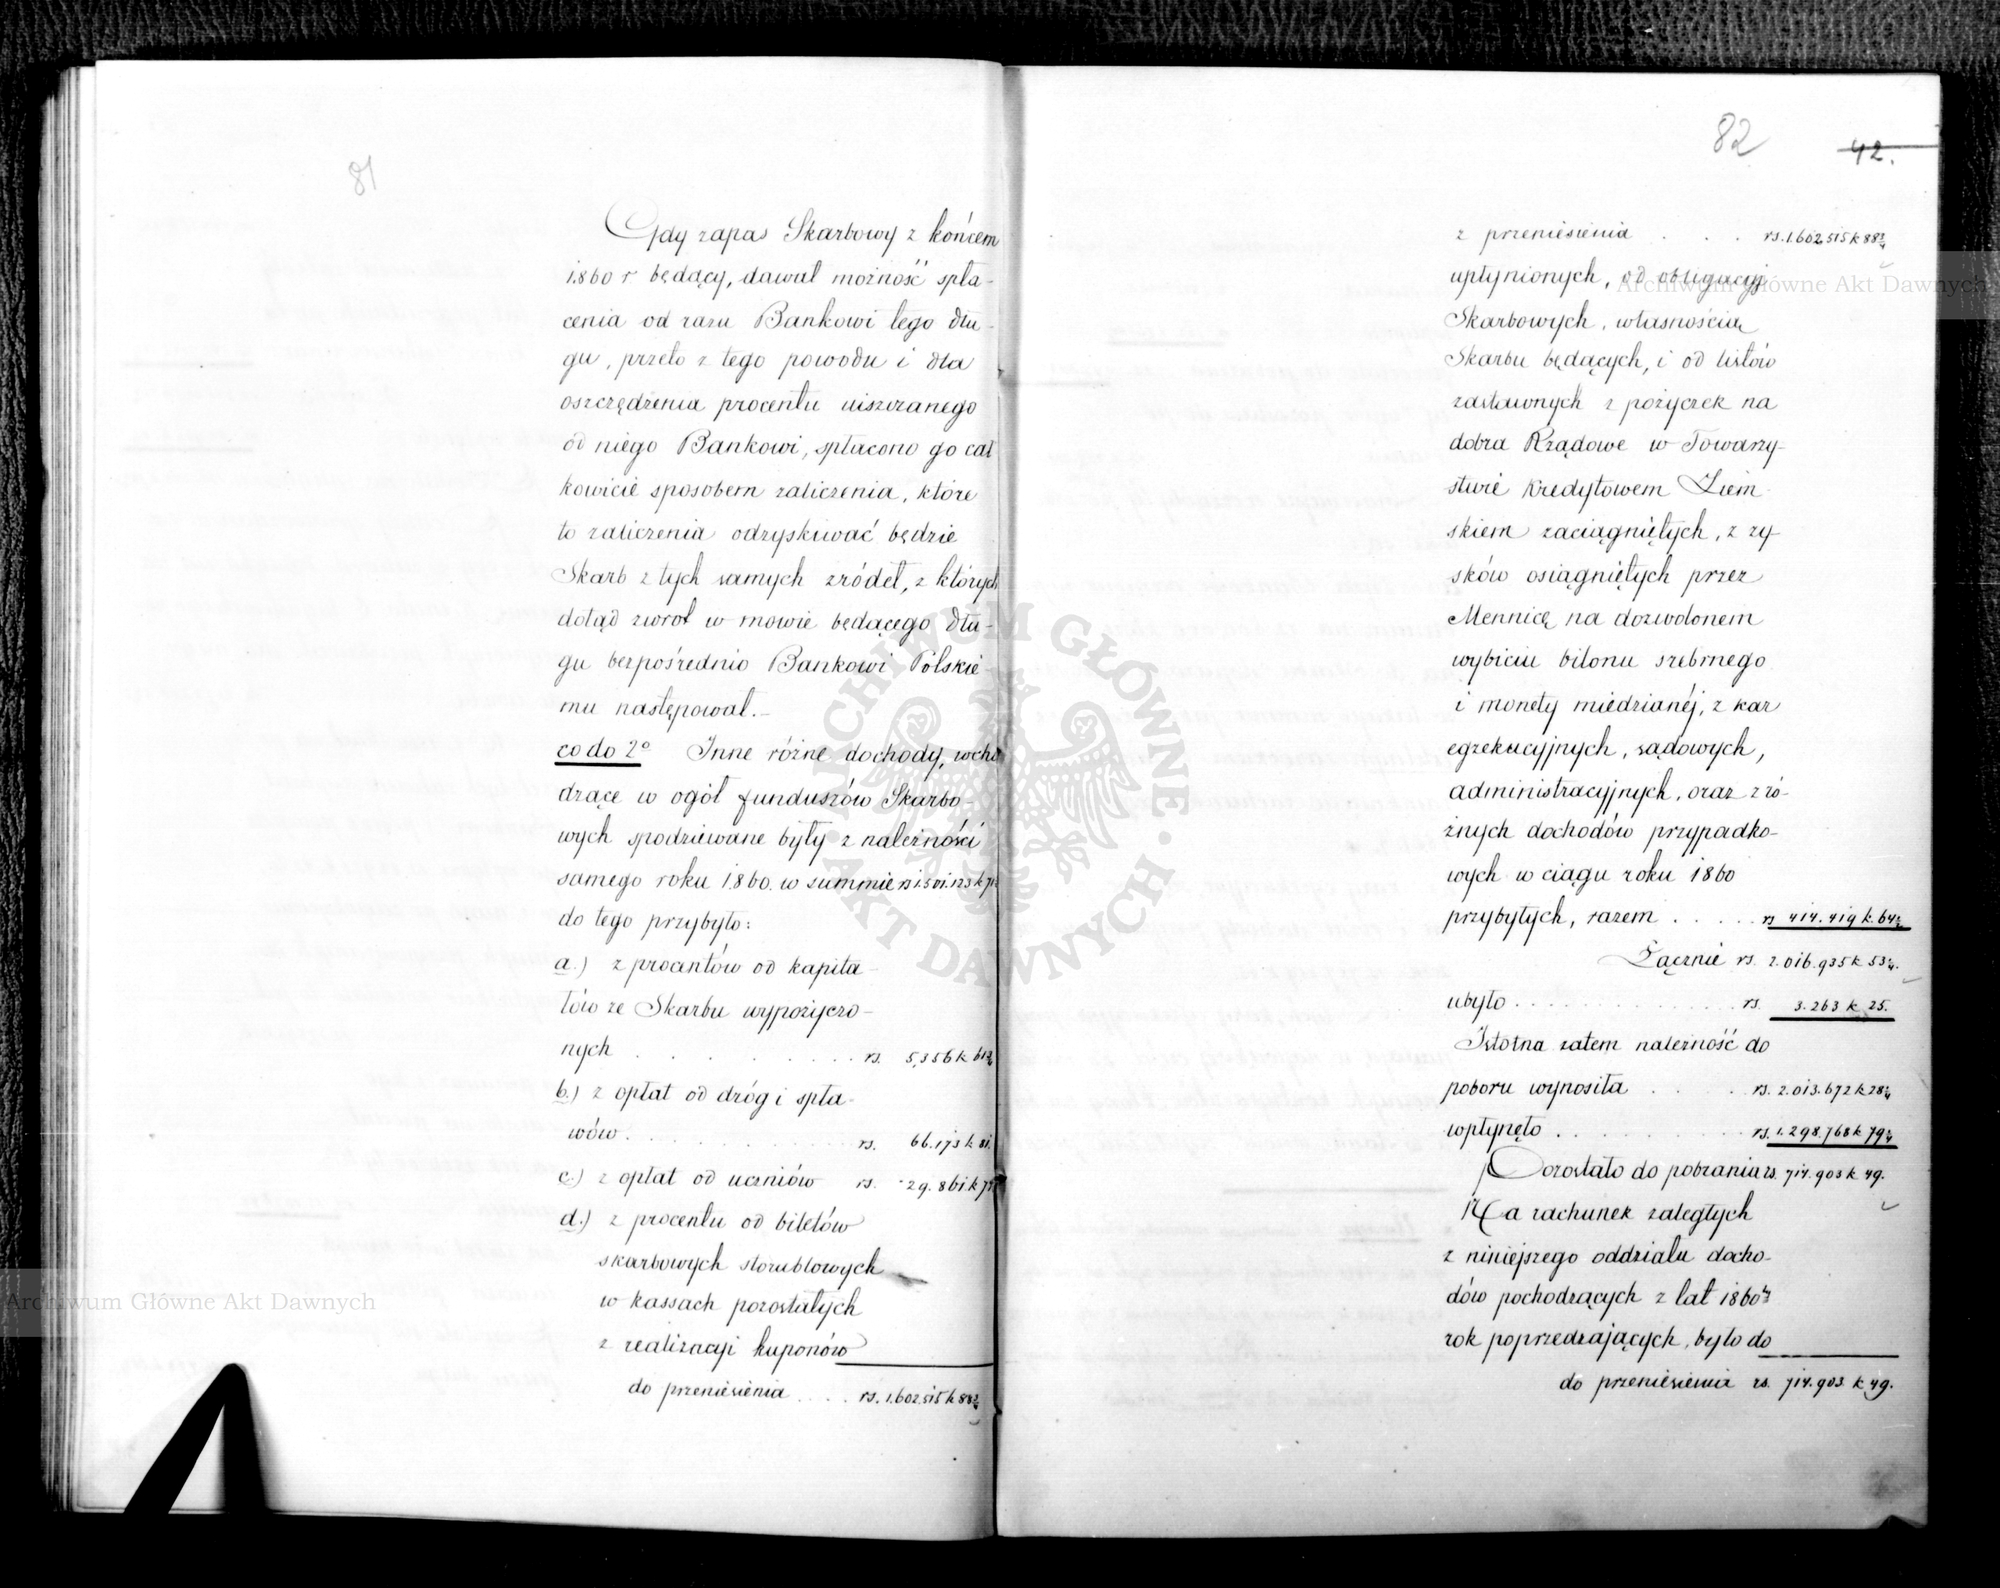 81
Gdy zapas Skarbowy z końcem
1860 r będący, dawał możność spła-
cenia od razu Bankowi tego dłu-
gu, przeto z tego powodu i dla
oszczędzenia procentu uiszczanego
od niego Bankowi, spłacono go cał
kowicie sposobem zaliczenia, które
to zaliczenia odzyskiwać będzie
Skarb z tych samych źródeł, z których
dotąd zwrot w mowie będącego dłu-
gu bezpośrednio Bankowi Polskie-
mu następował.-
co do 2º Inne różne dochody, wcho
dzące w ogół funduszów Skarbo-
wych spodziewane były z należności
samego roku 1860. w summie rs 1.501.123 k 71
do tego przybyło:
a.) z procentów od kapita-
łów ze Skarbu wypożyczo-
nych . . . . . . rs. 5,356 k 61¾
b.) z opłat od dróg i spła-
wów . . . . . . . . . rs. 66.173 k 81.
c.) z opłat od uczniów rs. 29.861 k 7
d.) z procentu od biletów
skarbowych storublowych
w kassach pozostałych
z realizacyi kuponów
do przeniesienia . . . . rs. 1.602.515 k 88¾
82
42.
z przeniesienia . . . rs. 1.602,515 k 88¾
upłynionych, od obligacyj
Skarbowych, własnością
Skarbu będących, i od listów
zastawnych z pożyczek na
dobra Rządowe w Towarzy-
stwie Kredytowem Ziem-
skiem zaciągniętych, z zy-
sków osiągniętych przez
Mennicę na dozwolonem
wybiciu bilonu srebrnego
i monety miedzianéj, z kar
egzekucyjnych, sądowych,
administracyjnych, oraz z ró-
żnych dochodów przypadko-
wych w ciągu roku 1860
przybyłych, razem . . . . . rs 414.419 k. 64½
Łącznie rs. 2.016.935 k 53¼.
ubyło . . . . . . . . . . . . . . rs. 3.263 k 25.
Istotna zatem należność do
poboru wynosiła . . . . rs. 2.013.672 k 28¼
wpłynęło . . . . . . . . . . . rs. 1.298.768 k 79¼
Pozostało do pobrania rs. 714.903 k 49.
Na rachunek zaległych
z niniejszego oddziału docho-
dów pochodzących z lat 1860ty
rok poprzedzających, było do
do przeniesienia rs. 714.903 k 49.
Archiwum Główne Akt Dawnych
Archiwum Główne Akt Dawnych
ARCHIWUM GŁÓWNE · AKT DAWNYCH ·